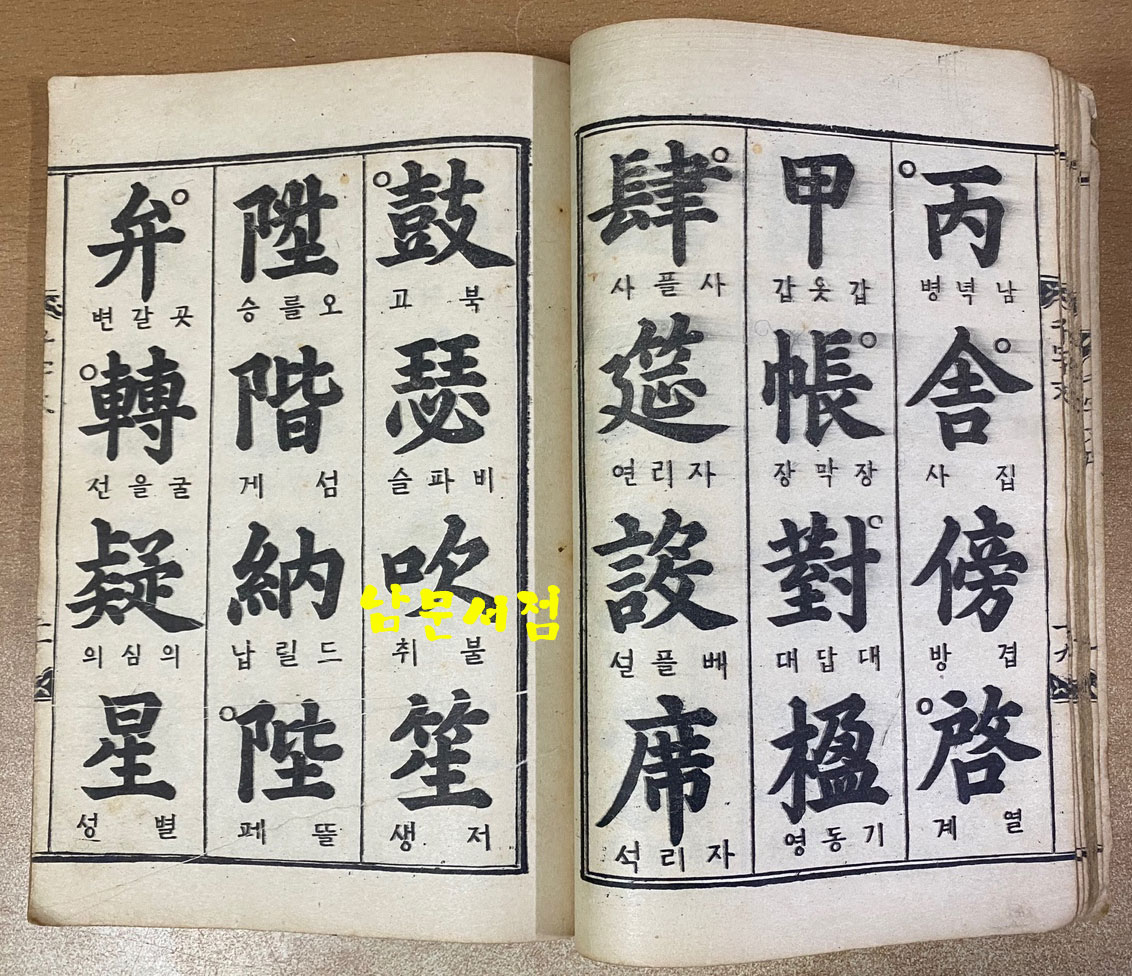 丙
남녁병
舍
집사
傍
겹방
啓
열계
甲
갑옷갑
帳
장막장
對
대답대
楹
기동영
肆
사플사
筵
자리연
設
베플설
席
자리석
鼓
북고
瑟
비파슬
吹
불취
笙
저생
陞
오를승
階
섬게
納
드릴납
陛
뜰페
弁
곳갈변
轉
굴을선
疑
의심의
星
별성
남문서점